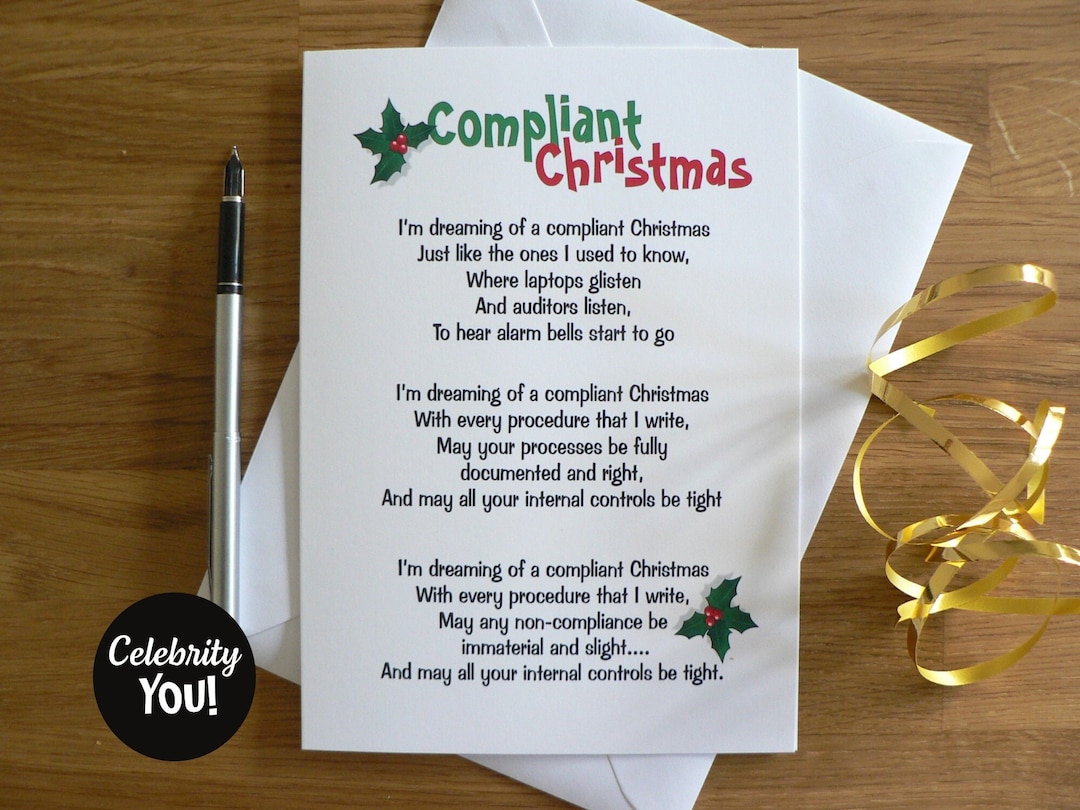 Compliant
Christmas
I'm dreaming of a compliant Christmas
Just like the ones I used to know,
Where laptops glisten
And auditors listen,
To hear alarm bells start to go
I'm dreaming of a compliant Christmas
With every procedure that I write,
May your processes be fully
documented and right,
And may all your internal controls be tight
I'm dreaming of a compliant Christmas
With every procedure that I write,
May any non-compliance be
immaterial and slight....
And may all your internal controls be tight.
Celebrity
YOU!